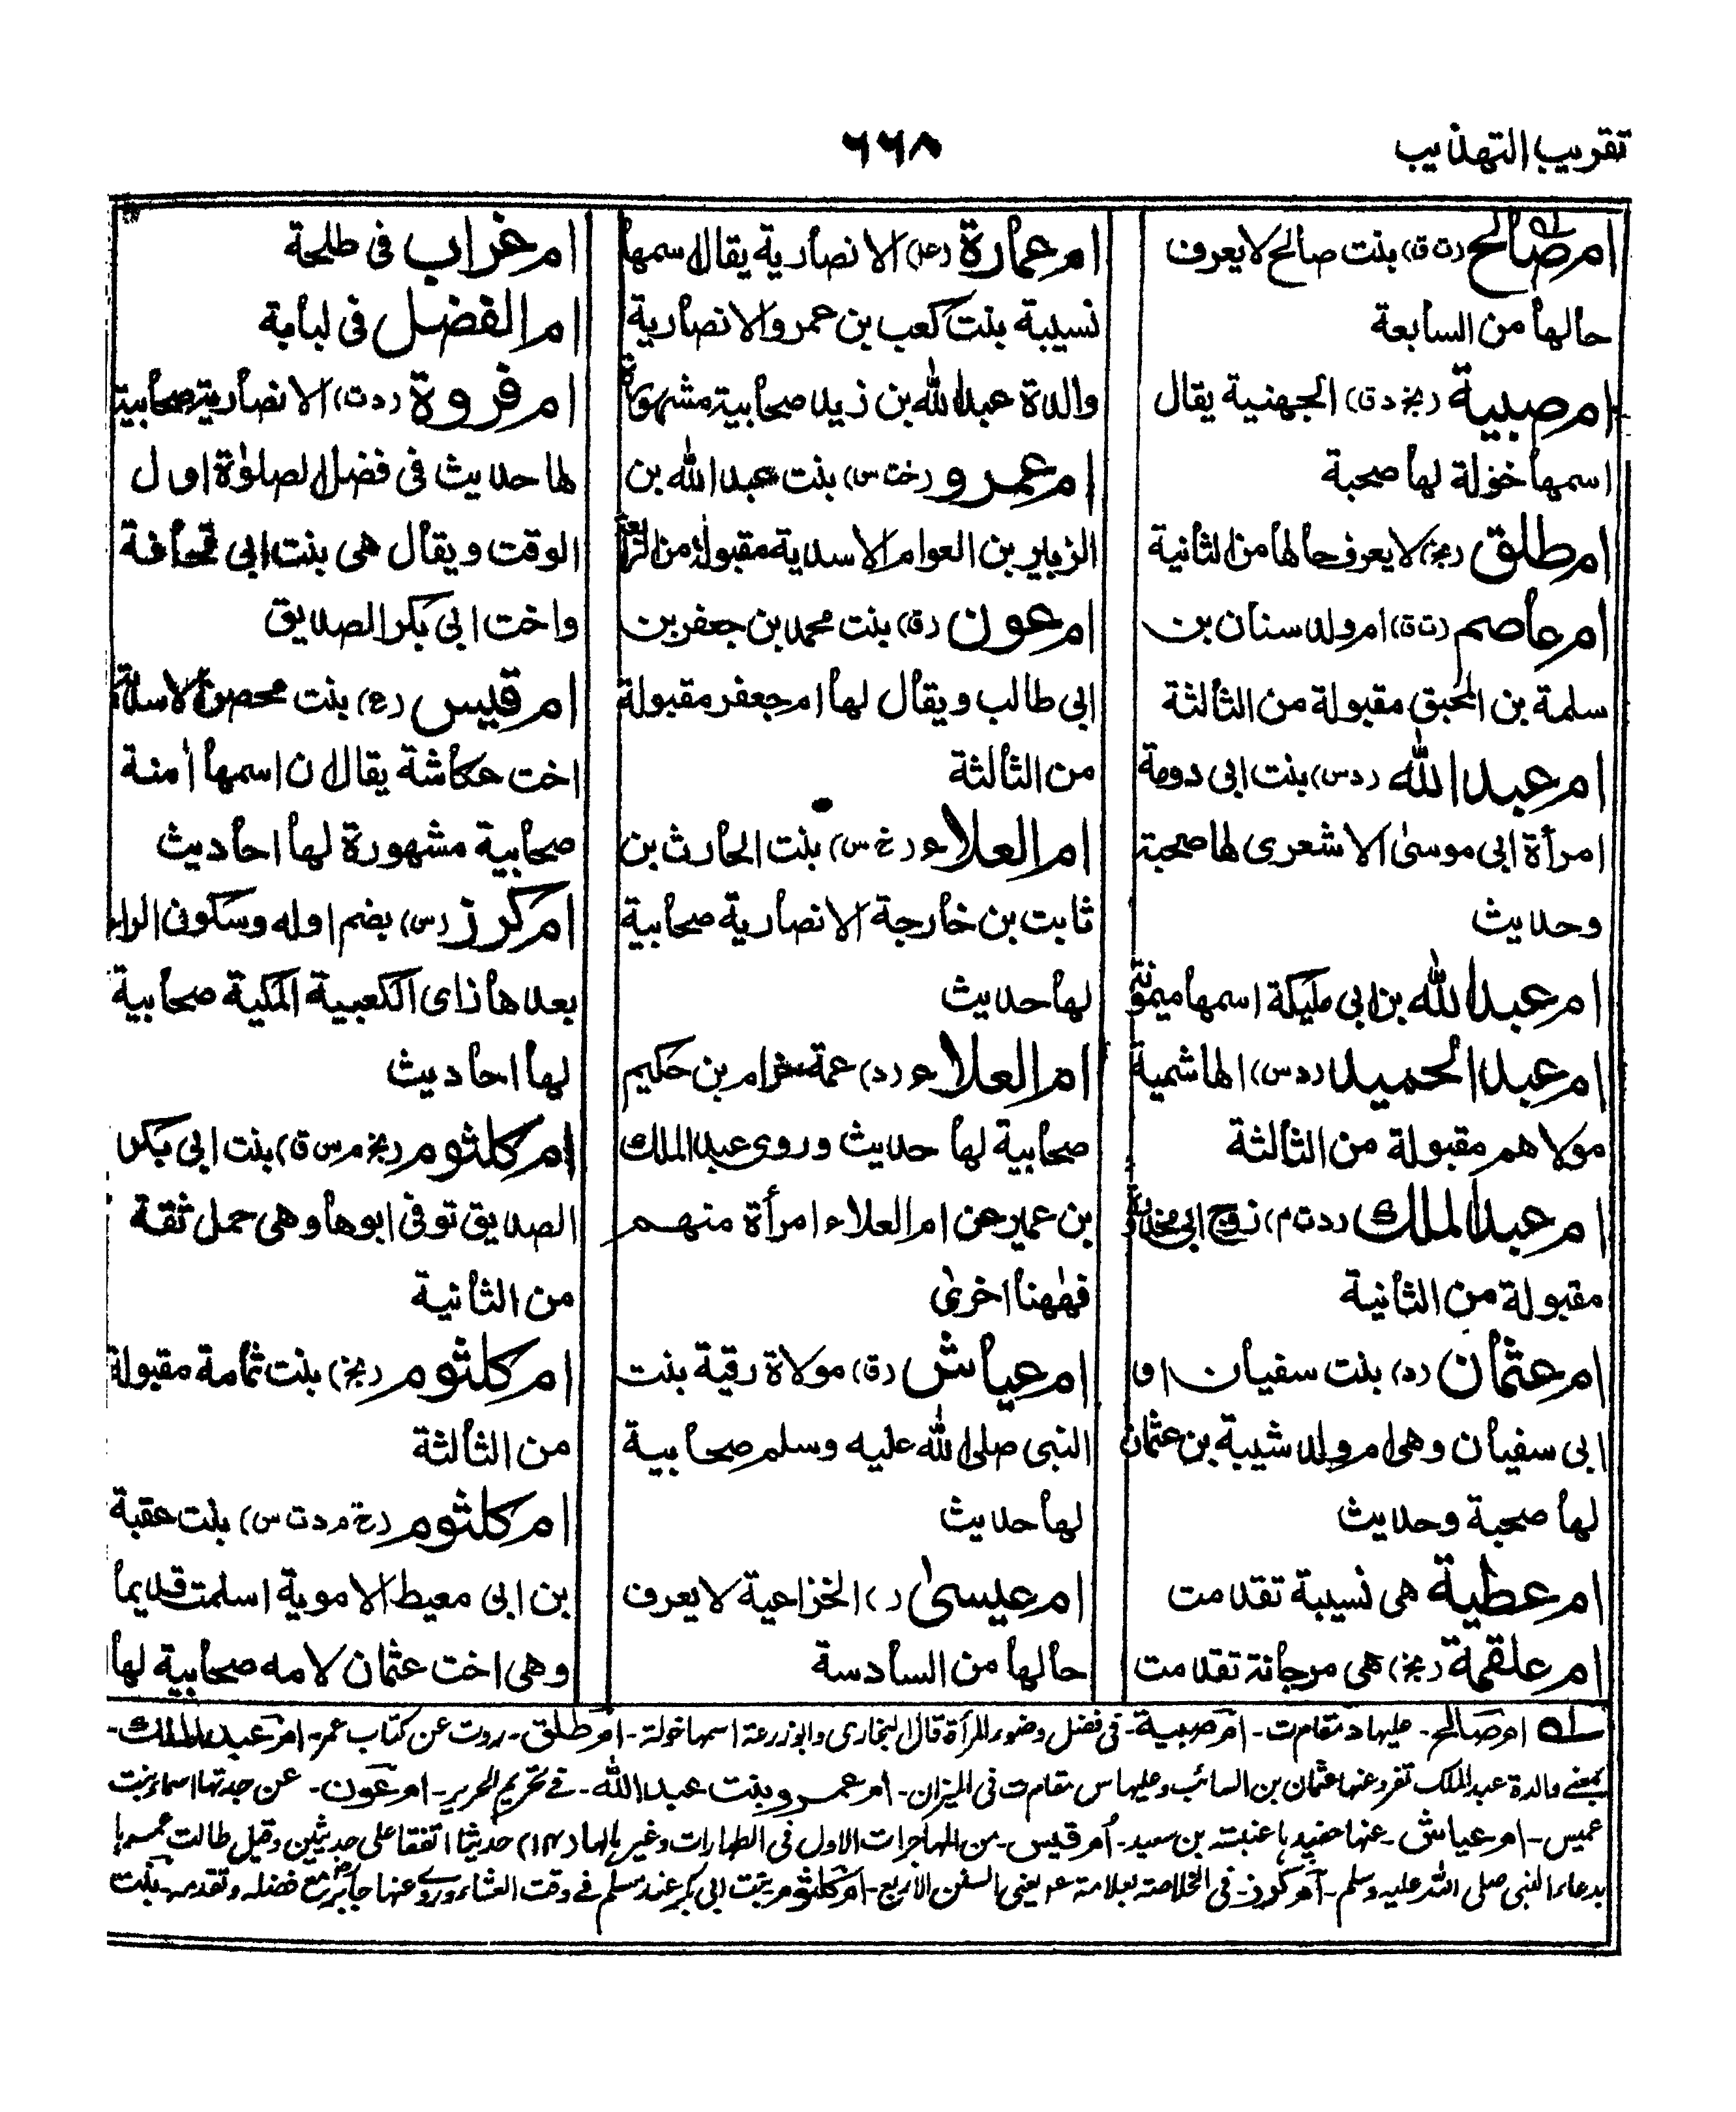 تقريب التهذيب
٦٦٨
ام صالح (ت ق) بنت صالح لا يعرف
حالها من السابعة
ام صبية (بخ د ق) الجهنية يقال
اسمها خولة لها صحبة
ام طلق (بخ) لا يعرف حالها من الثانية
ام عاصم (ت ق) ام ولد سنان بن
سلمة بن المحبق مقبولة من الثالثة
ام عبد الله (د س) بنت ابى دومة
امرأة ابى موسىٰ الاشعرى لها صحبة
وحديث
ام عبد الله بن ابى مليكة اسمها ميمونة
ام عبد الحميد (د س) الهاشمية
مولاهم مقبولة من الثالثة
ام عبد الملك (د ت م) زوج ابى محذورة
مقبولة من الثانية
ام عثمان (د) بنت سفيان او
ابى سفيان وهى ام ولد شيبة بن عثمان
لها صحبة وحديث
ام عطية هى نسيبة تقدمت
ام علقمة (بخ) هى مرجانة تقدمت
ام عمارة (عم) الانصارية يقال اسمها
نسيبة بنت كعب بن عمرو الانصارية
والدة عبد الله بن زيد صحابية مشهورة
ام عمرو (خت س) بنت عبد الله بن
الزبير بن العوام الاسدية مقبولة من الرابعة
ام عون (ق) بنت محمد بن جعفر بن
ابى طالب ويقال لها ام جعفر مقبولة
من الثالثة
ام العلاء (خ س) بنت الحارث بن
ثابت بن خارجة الانصارية صحابية
لها حديث
ام العلاء (د) عمة حزام بن حكيم
صحابية لها حديث وروى عبد الملك
بن عمير عن ام العلاء امرأة منهم
فهٰهنا اخرىٰ
ام عياش (ق) مولاة رقية بنت
النبى صلى الله عليه وسلم صحابية
لها حديث
ام عيسىٰ ( ) الخزاعية لا يعرف
حالها من السادسة
ام غراب فى طلحة
ام الفضل فى لبابة
ام فروة (د ت) الانصارية صحابية
لها حديث فى فضل الصلوٰة اول
الوقت ويقال هى بنت ابى قحافة
واخت ابى بكر الصديق
ام قيس (ع) بنت محصن الاسدية
اخت عكاشة يقال ان اسمها اٰمنة
صحابية مشهورة لها احاديث
ام كرز (س) بضم اوله وسكون الراء
بعدها زاى الكعبية المكية صحابية
لها احاديث
ام كلثوم (بخ م س ق) بنت ابى بكر
الصديق توفى ابوها وهى حمل ثقة
من الثانية
ام كلثوم (بخ) بنت ثمامة مقبولة
من الثالثة
ام كلثوم (خ م د ت س) بنت عقبة
بن ابى معيط الاموية اسلمت قديما
وهى اخت عثمان لامه صحابية لها
له ام صالح - عليها د تقام ت - ام صبية - فى فضل وضوء المرأة قال البخارى وابو زرعة اسمها خولة - ام طلق - روت عن كتاب عمر - ام عبد الملك -
بمعنے والدة عبد الملك تفرد عنها عثمان بن السائب وعليها س تقام ت فى الميزان - ام عمرو بنت عبد الله - فے تحريم الحرير - ام عون - عن جدتها اسماء بنت
عميس - ام عياش - عنها حفيدها عنبسة بن سعيد - ام قيس - من المهاجرات الاول فى الطهارات وغيرها لها (٢٤) حديثا اتفقا على حديثين وقيل طالت عمرها
بدعاء النبى صلى الله عليه وسلم - ام كرز - فى الخلاصة بعلامة عه يعنى السنن الاربع - ام كلثوم بنت ابى بكر عند مسلم فے وقت العشاء وروے عنها جابر مع فضله وتقدمه - بنت